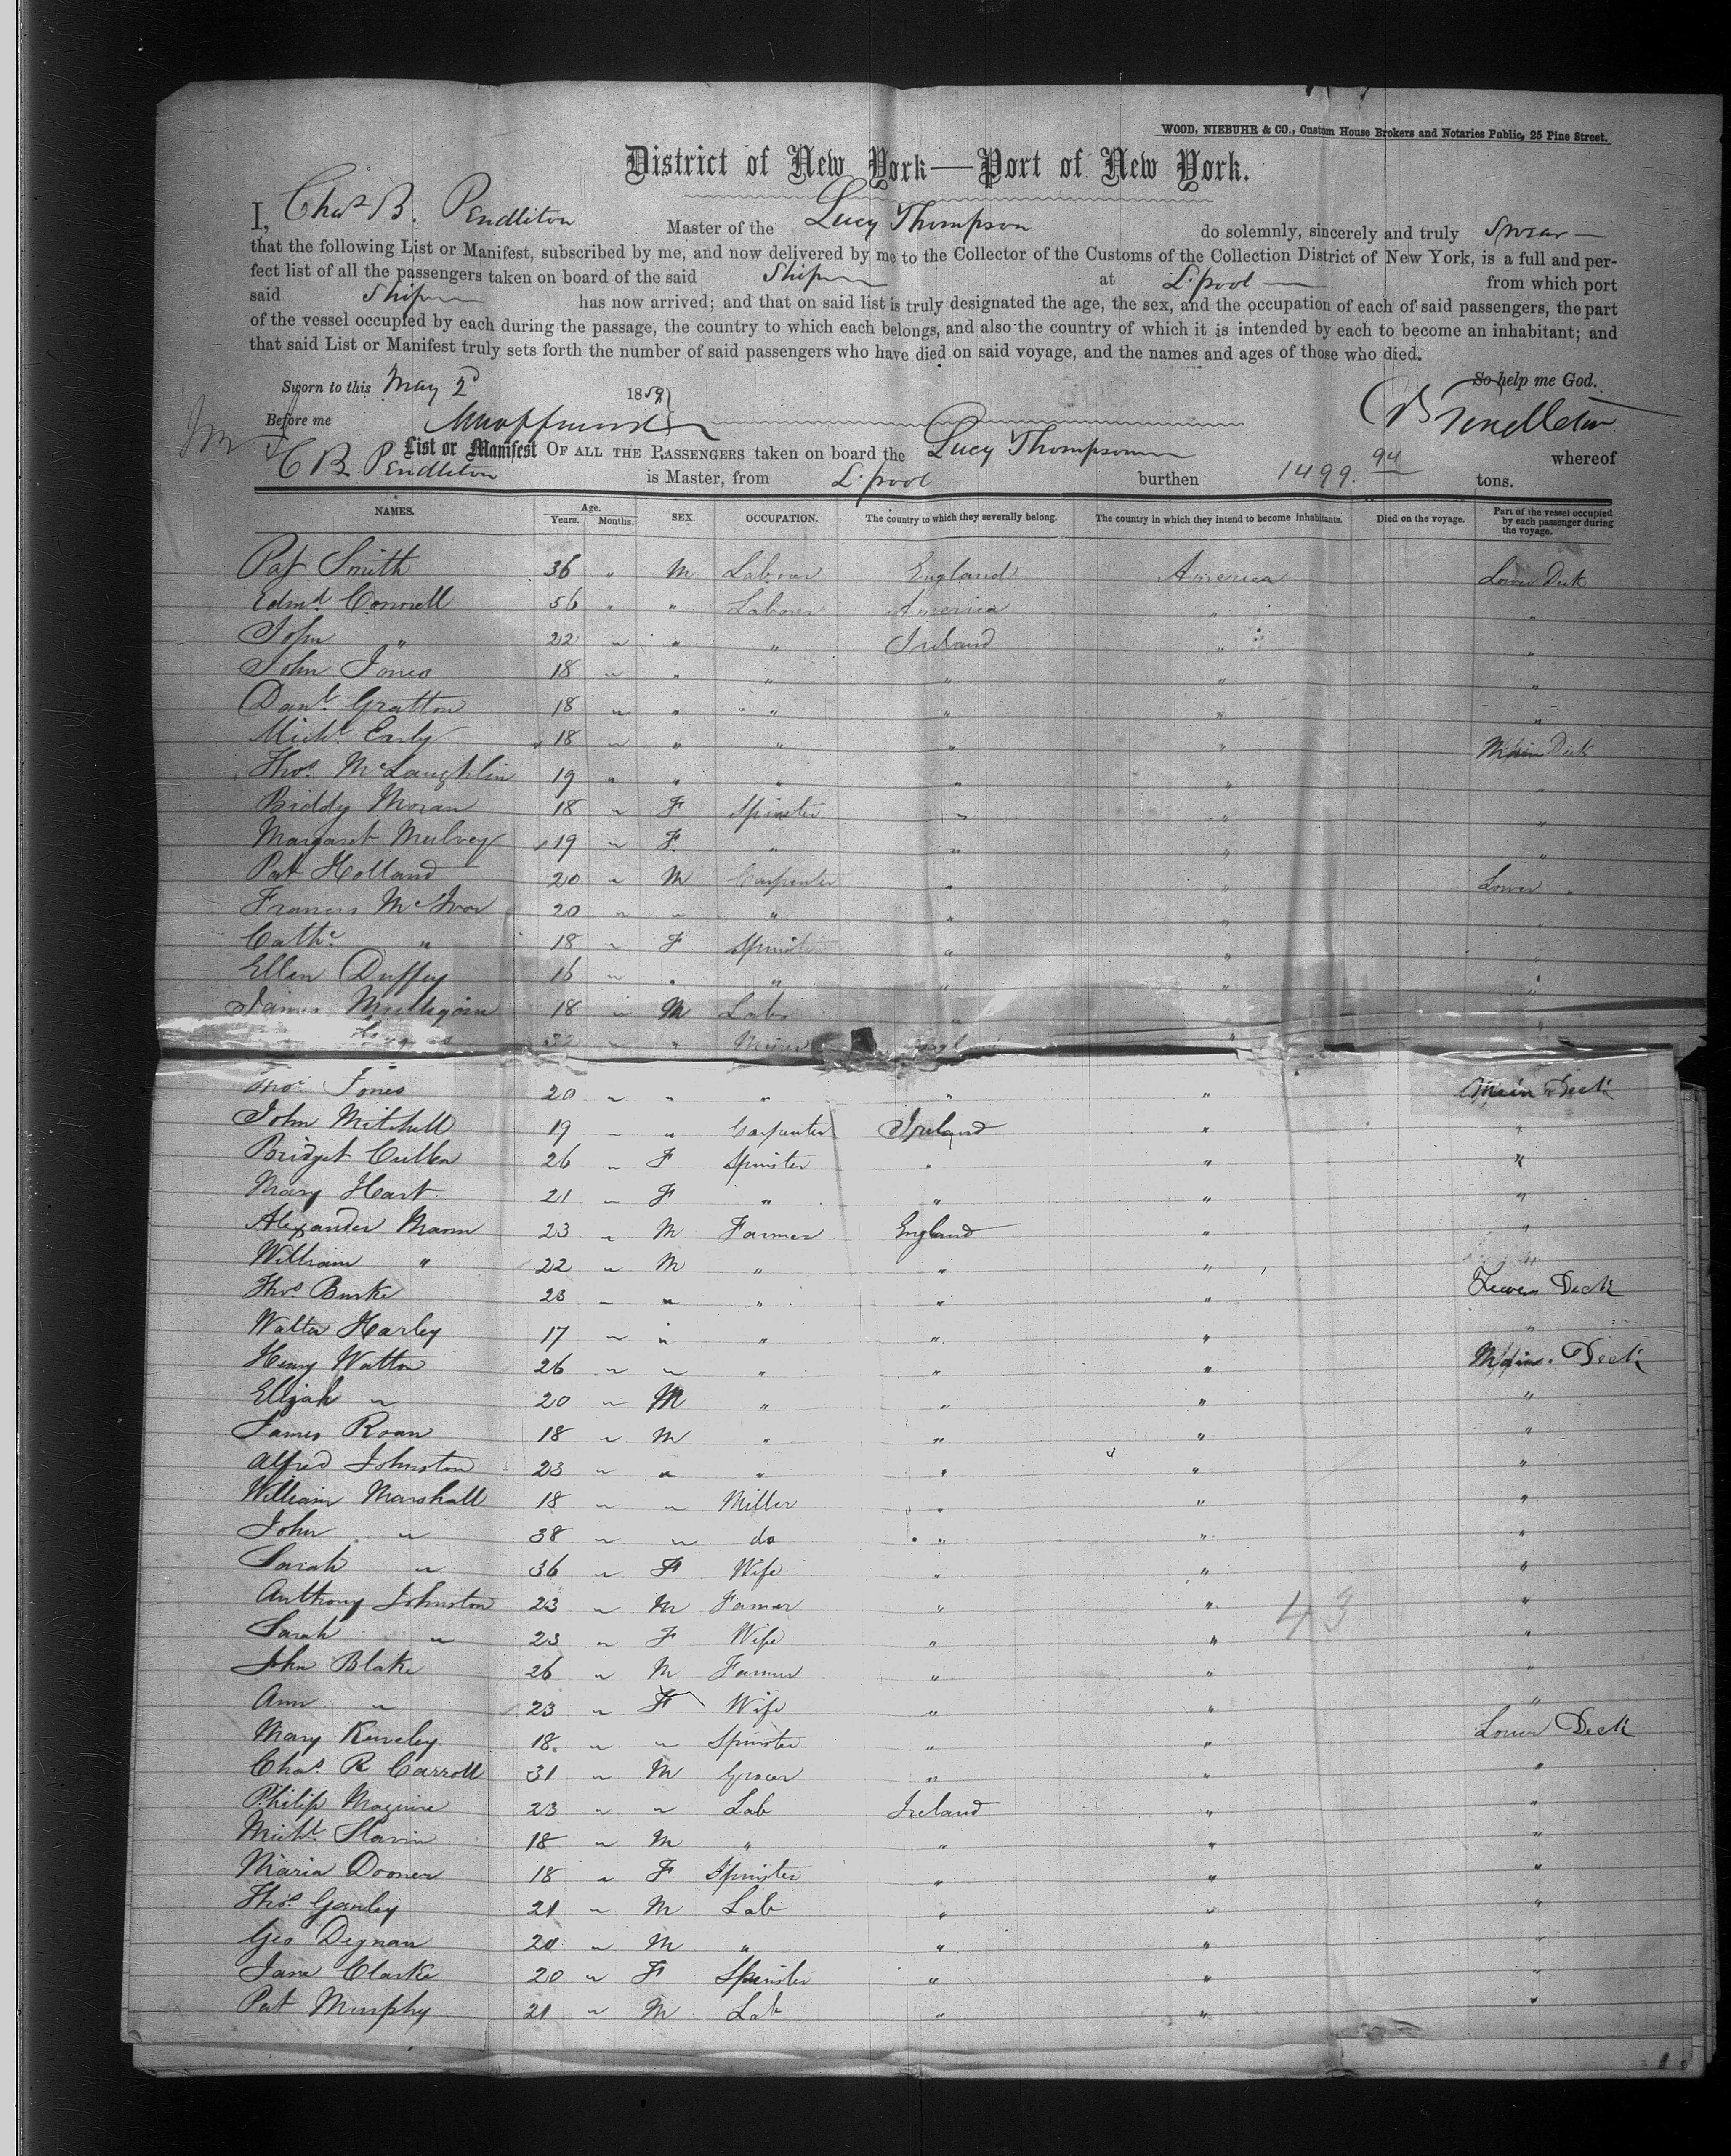 WOOD, NIEBUHR & CO., Custom House Brokers and Notaries Public, 25 Pine Street.
District of New York—Port of New York.
I, Chas B. Pendleton Master of the Lucy Thompson do solemnly, sincerely and truly swear
that the following List or Manifest, subscribed by me, and now delivered by me to the Collector of the Customs of the Collection District of New York, is a full and per-
fect list of all the passengers taken on board of the said Ship at L.pool from which port
said Ship has now arrived; and that on said list is truly designated the age, the sex, and the occupation of each of said passengers, the part
of the vessel occupied by each during the passage, the country to which each belongs, and also the country of which it is intended by each to become an inhabitant; and
that said List or Manifest truly sets forth the number of said passengers who have died on said voyage, and the names and ages of those who died.
Sworn to this May 2d 1859 So help me God.
Before me CB Pendleton
List or Manifest OF ALL THE PASSENGERS taken on board the Lucy Thompson whereof
C B Pendleton is Master, from L.pool burthen 1499. 94 tons.
NAMES. Age. Years. Months. SEX. OCCUPATION. The country to which they severally belong. The country in which they intend to become inhabitants. Died on the voyage. Part of the vessel occupied by each passenger during the voyage.
Pat Smith 36 " M Labour England America Lower Deck
Edmd Connell 56 " " Laborer America " "
John " 22 " " " Ireland " "
John Jones 18 " " " " " "
Danl Gratton 18 " " " " " "
Michl Early 18 " " " " " Main Deck
Thos McLaughlin 19 " " " " " "
Biddy Moran 18 " F Spinster " " "
Margaret Mulvey 19 " F. " " " "
Pat Holland 20 " M Carpenter " " Lower "
Francis McIvor 20 " " " " " "
Cathe " 18 " F Spinster " " "
Ellen Duffy 16 " " " " " "
James Mulligan 18 " M Lab " " "
32 " " Miner England " "
Thos Jones 20 " " " " " Main Deck
John Mitchell 19 " " Carpenter Ireland " "
Bridget Cullen 26 " F Spinster " " "
Mary Hart 21 " F " " " "
Alexander Mann 23 " M Farmer England " "
William " 22 " M " " " "
Thos Burke 23 " " " " " Lower Deck
Walter Harley 17 " " " " " "
Henry Watton 26 " " " " " Main Deck
Elijah " 20 " M " " " "
James Roan 18 " M " " " "
Alfred Johnston 23 " " " " " "
William Marshall 18 " " Miller " " "
John " 38 " " do " " "
Sarah " 36 " F Wife " " "
Anthony Johnston 23 " M Farmer " " "
43
Sarah " 23 " F Wife " " "
John Blake 26 " M Farmer " " "
Ann " 23 " F Wife " " "
Mary 18 " " Spinster " " Lower Deck
Chas R Carroll 31 " M Grocer " " "
Philip Maguire 23 " " Lab Ireland " "
Michl Slavin 18 " M " " " "
Maria Dooner 18 " F Spinster " " "
Thos Ganley 21 " M Lab " " "
Geo Degnan 20 " M " " " "
Jane Clarke 20 " F Spinster " " "
Pat Murphy 21 " M Lab " " "